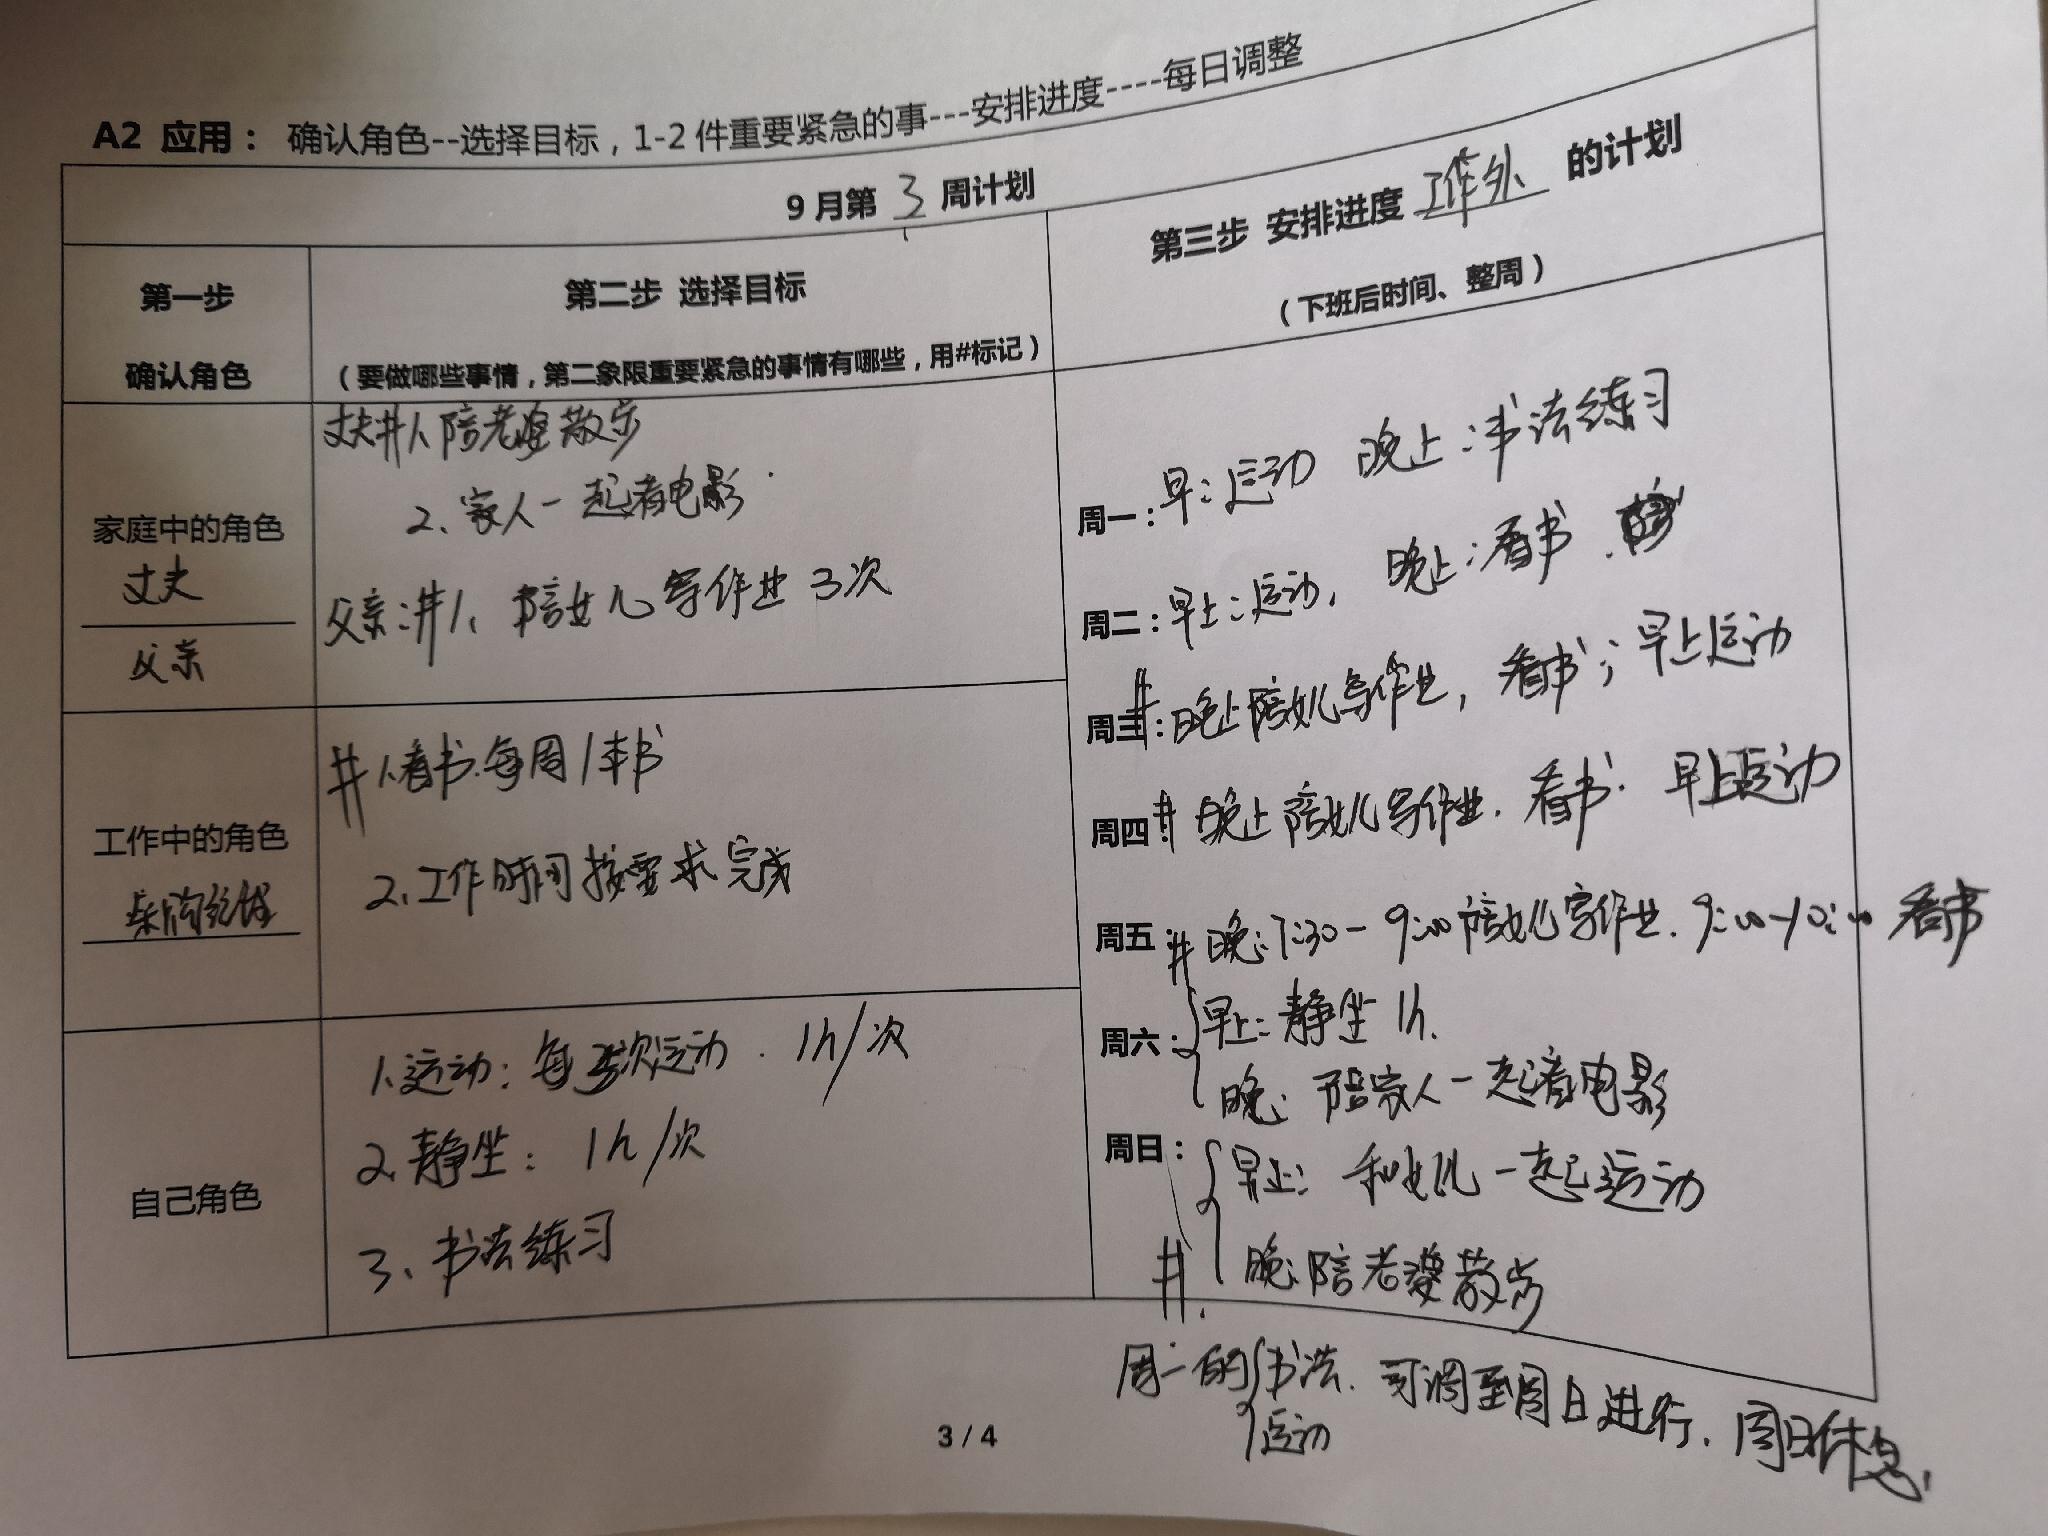 A2 应用： 确认角色--选择目标，1-2 件重要紧急的事---安排进度----每日调整
9月第 3 周计划
第一步
确认角色
第二步 选择目标
（要做哪些事情，第二象限重要紧急的事情有哪些，用#标记）
第三步 安排进度 工作外 的计划
（下班后时间、整周）
家庭中的角色
丈夫
父亲
丈夫#1、陪老婆散步
2、家人一起看电影
父亲：#1、陪女儿写作业 3次
工作中的角色
采购经理
#1、看书.每周1本书
2、工作时间按要求完成
自己角色
1、运动：每 次运动. 1h/次
2、静坐： 1h/次
3、书法练习
周一：早：运动 晚上：书法练习
周二：早上：运动, 晚上：看书.
周三：# 晚上陪女儿写作业, 看书；早上运动
周四# 晚上陪女儿写作业. 看书. 早上运动
周五：# 晚：7:30-9:00陪女儿写作业. 9:00-10:00 看书
周六： 早上：静坐 1h.
晚：陪家人一起看电影
周日： 早上：和女儿一起运动
# 晚：陪老婆散步
周一的 书法. 可调至周日进行, 周日休息.
运动
3 / 4